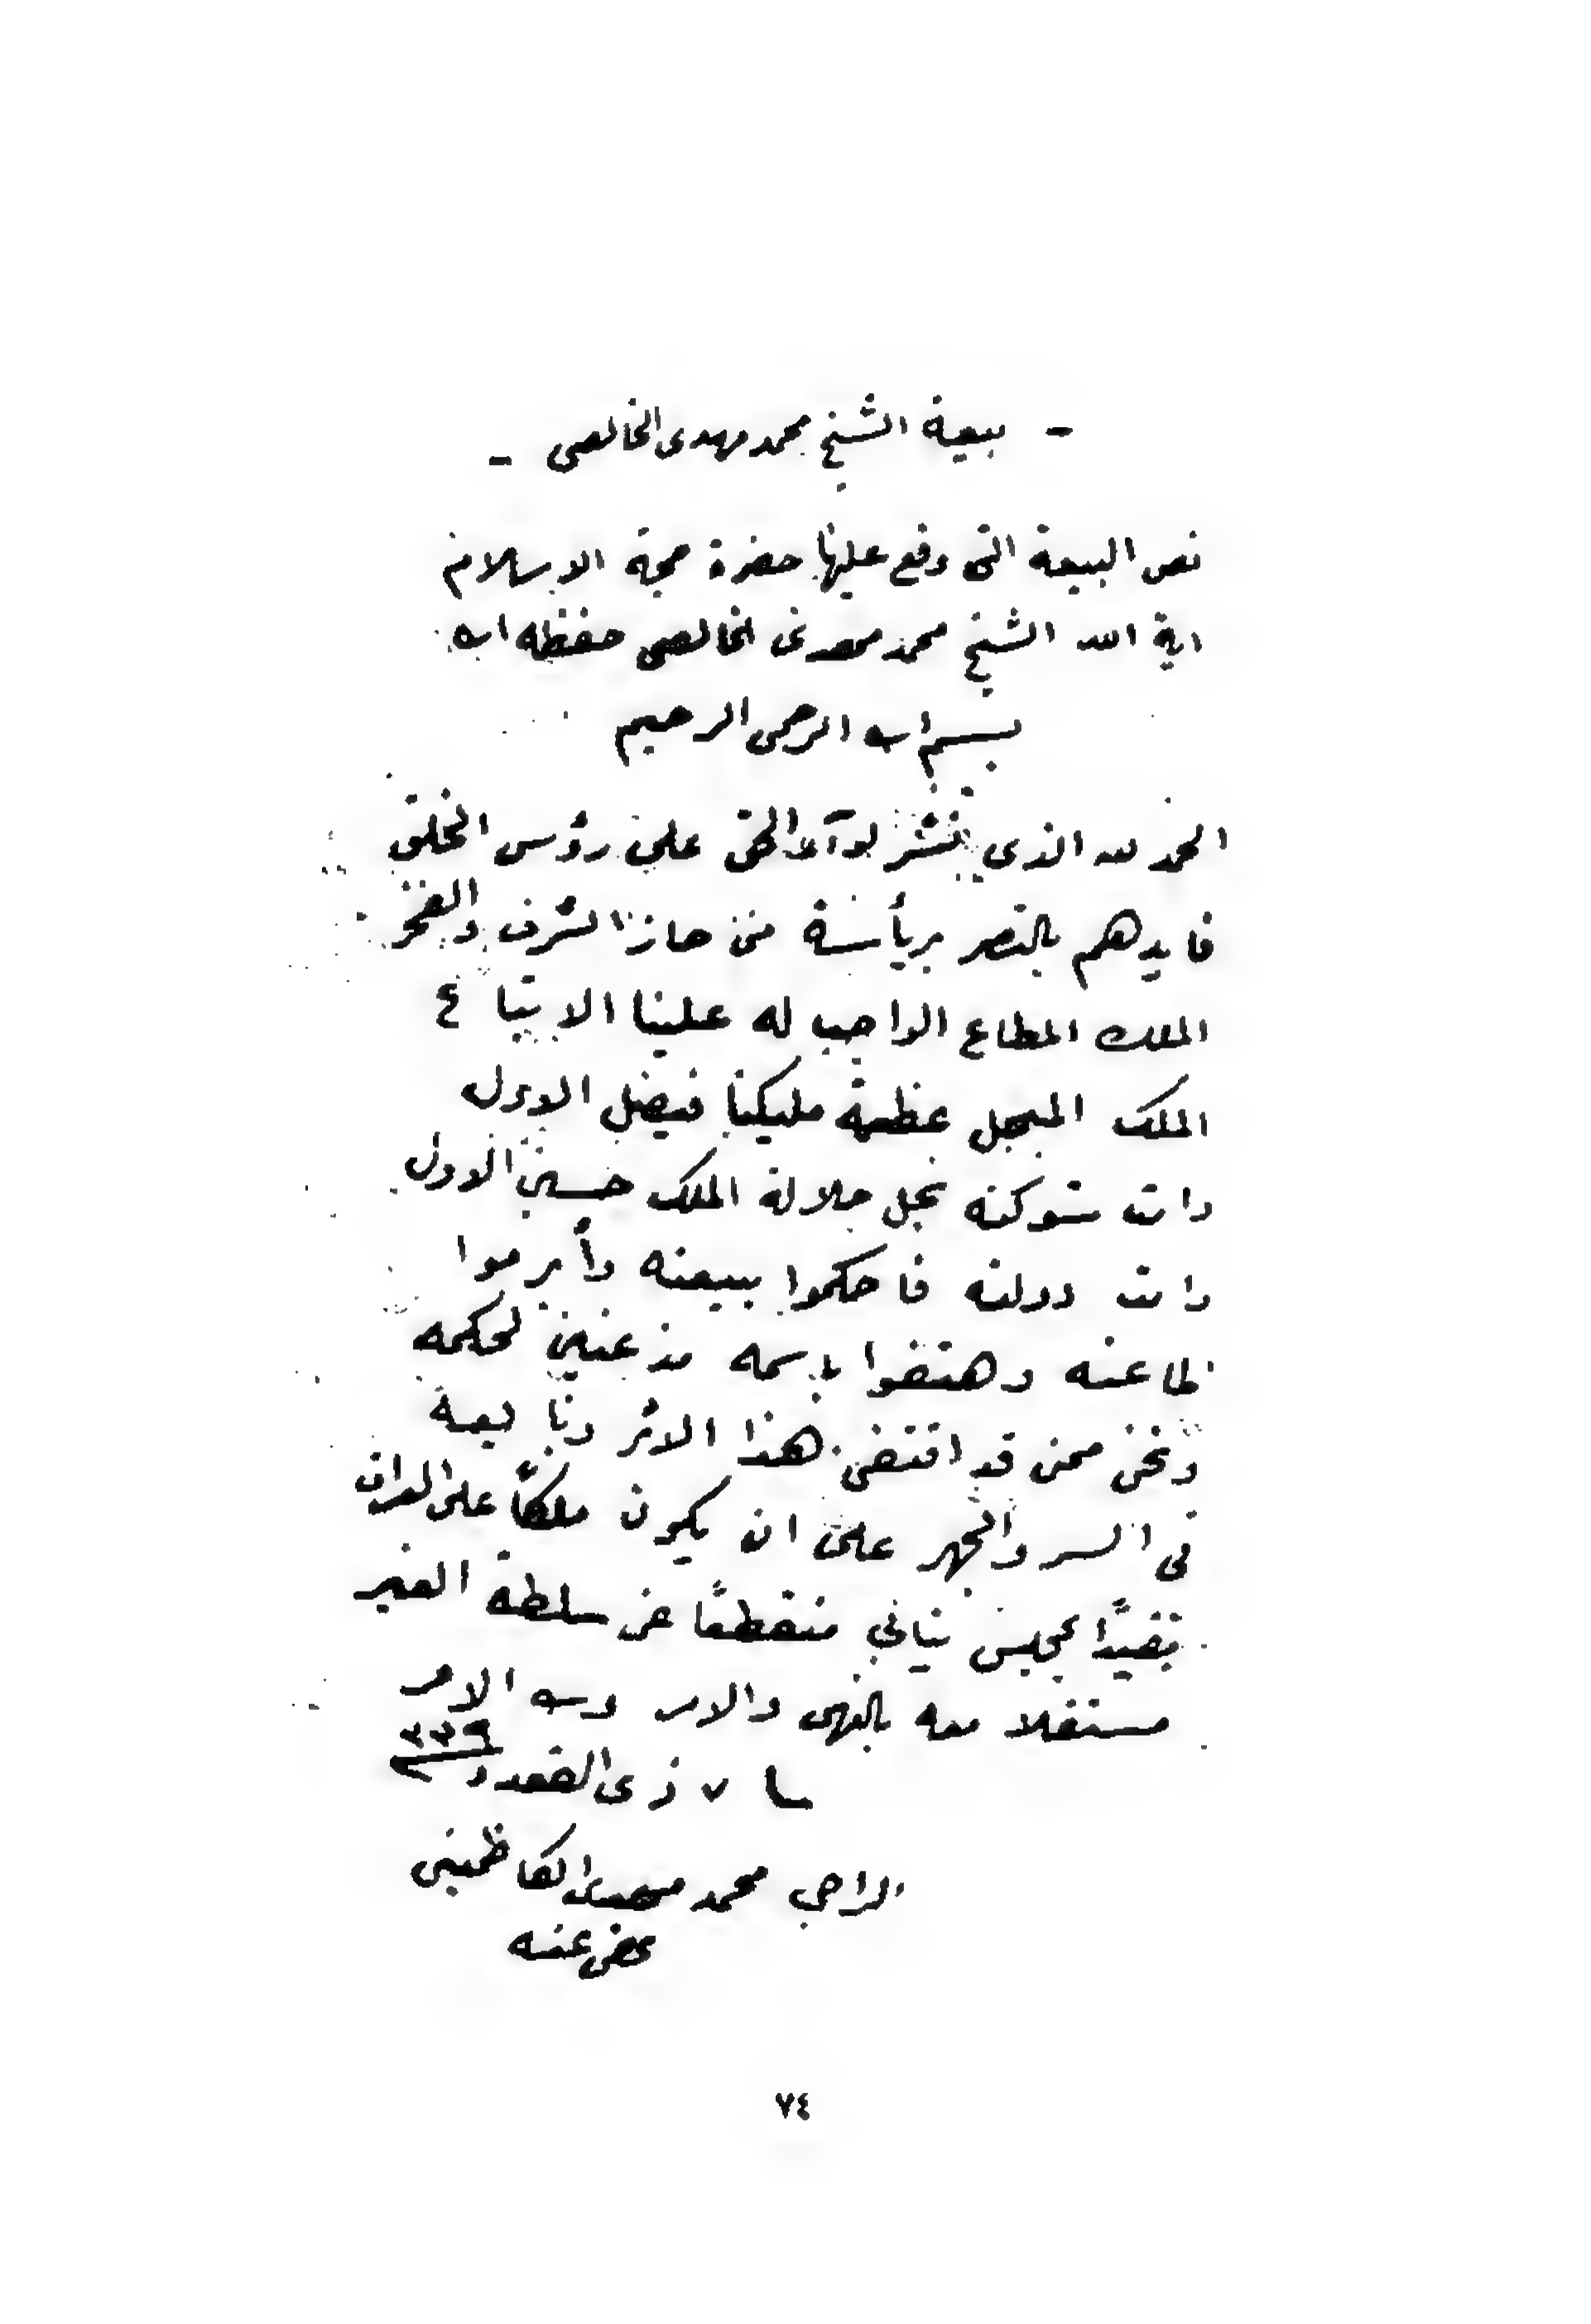 - بيعة الشيخ محمد مهدى الخالصى -
نص البيعة التى وقع عليها حضرة حجة الاسلام
اية الله الشيخ محمد مهدى الخالصى حفظه الله
بسم الله الرحمن الرحيم
الحمد لله الذى نشر لوآء الحق على رؤس الخلق
فايدهم بالنصر برأسة من حاز الشرف والفخر
الملك المطاع الواجب له علينا الاتباع
الملك المبجل عظمة مليكنا فيصل الاول
دامت شوكته نجل جلالة الملك حسين الاول
دامت دولته فاحكموا ببيعته وأبرموا
طاعته وهتفوا باسمه مذعنين لحكمه
ونحن ممن قد اقتفى هذا الاثر وبايعه
فى السر والجهر على ان يكون ملكاً على العراق
مقيدًا بمجلس نيابي منقطعًا عن سلطة الغير
مستقلا معه بالنهى والامر ولله الامر
٧ ذى القعدة ٣٣٩
الراجي محمد مهدى الكاظمينى
عفى عنه
٧٤